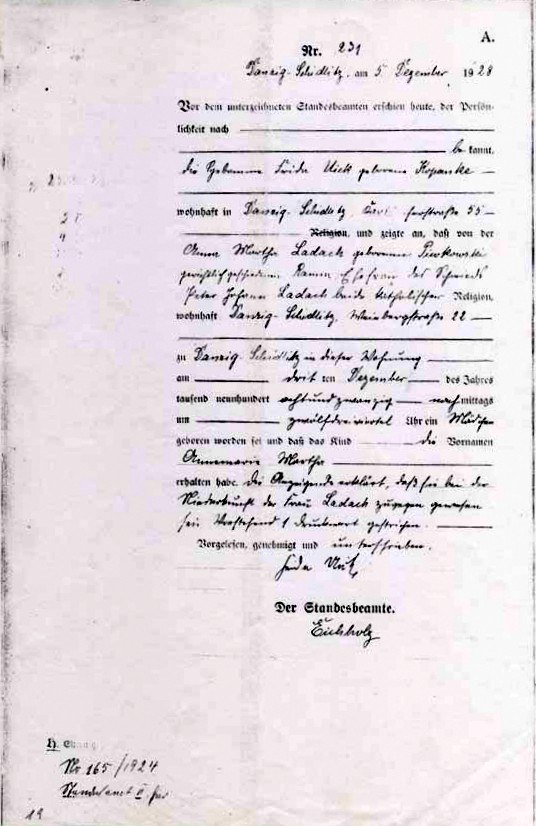 A.
Nr. 231
Danzig-Schidlitz, am 5 Dezember 1928
Vor dem unterzeichneten Standesbeamten erschien heute, der Persön-
lichkeit nach
be kannt,
die Hebamme Frida geborene Kopanke
wohnhaft in Danzig-Schidlitz, 55
Religion, und zeigte an, daß von der
Anna Martha Ladach geborene Piwkowski
gerichtlich geschiedene Ramm, Ehefrau des Schmieds
Peter Johann Ladach beide katholischer Religion,
wohnhaft Danzig-Schidlitz, Weinbergstraße 22
zu Danzig-Schidlitz in dieser Wohnung
am dritten Dezember des Jahres
tausend neunhundert achtundzwanzig nachmittags
um zwölfdreiviertel Uhr ein Mädchen
geboren worden sei und daß das Kind die Vornamen
Annemarie Martha
erhalten habe. Die Anzeigende erklärt, daß sie bei der
Niederkunft der Frau Ladach zugegen gewesen
sei. Vorstehend 1 Druckwort gestrichen.
Vorgelesen, genehmigt und unterschrieben.
Der Standesbeamte.
Eichholz
Nr 165/1924
Standesamt II
19